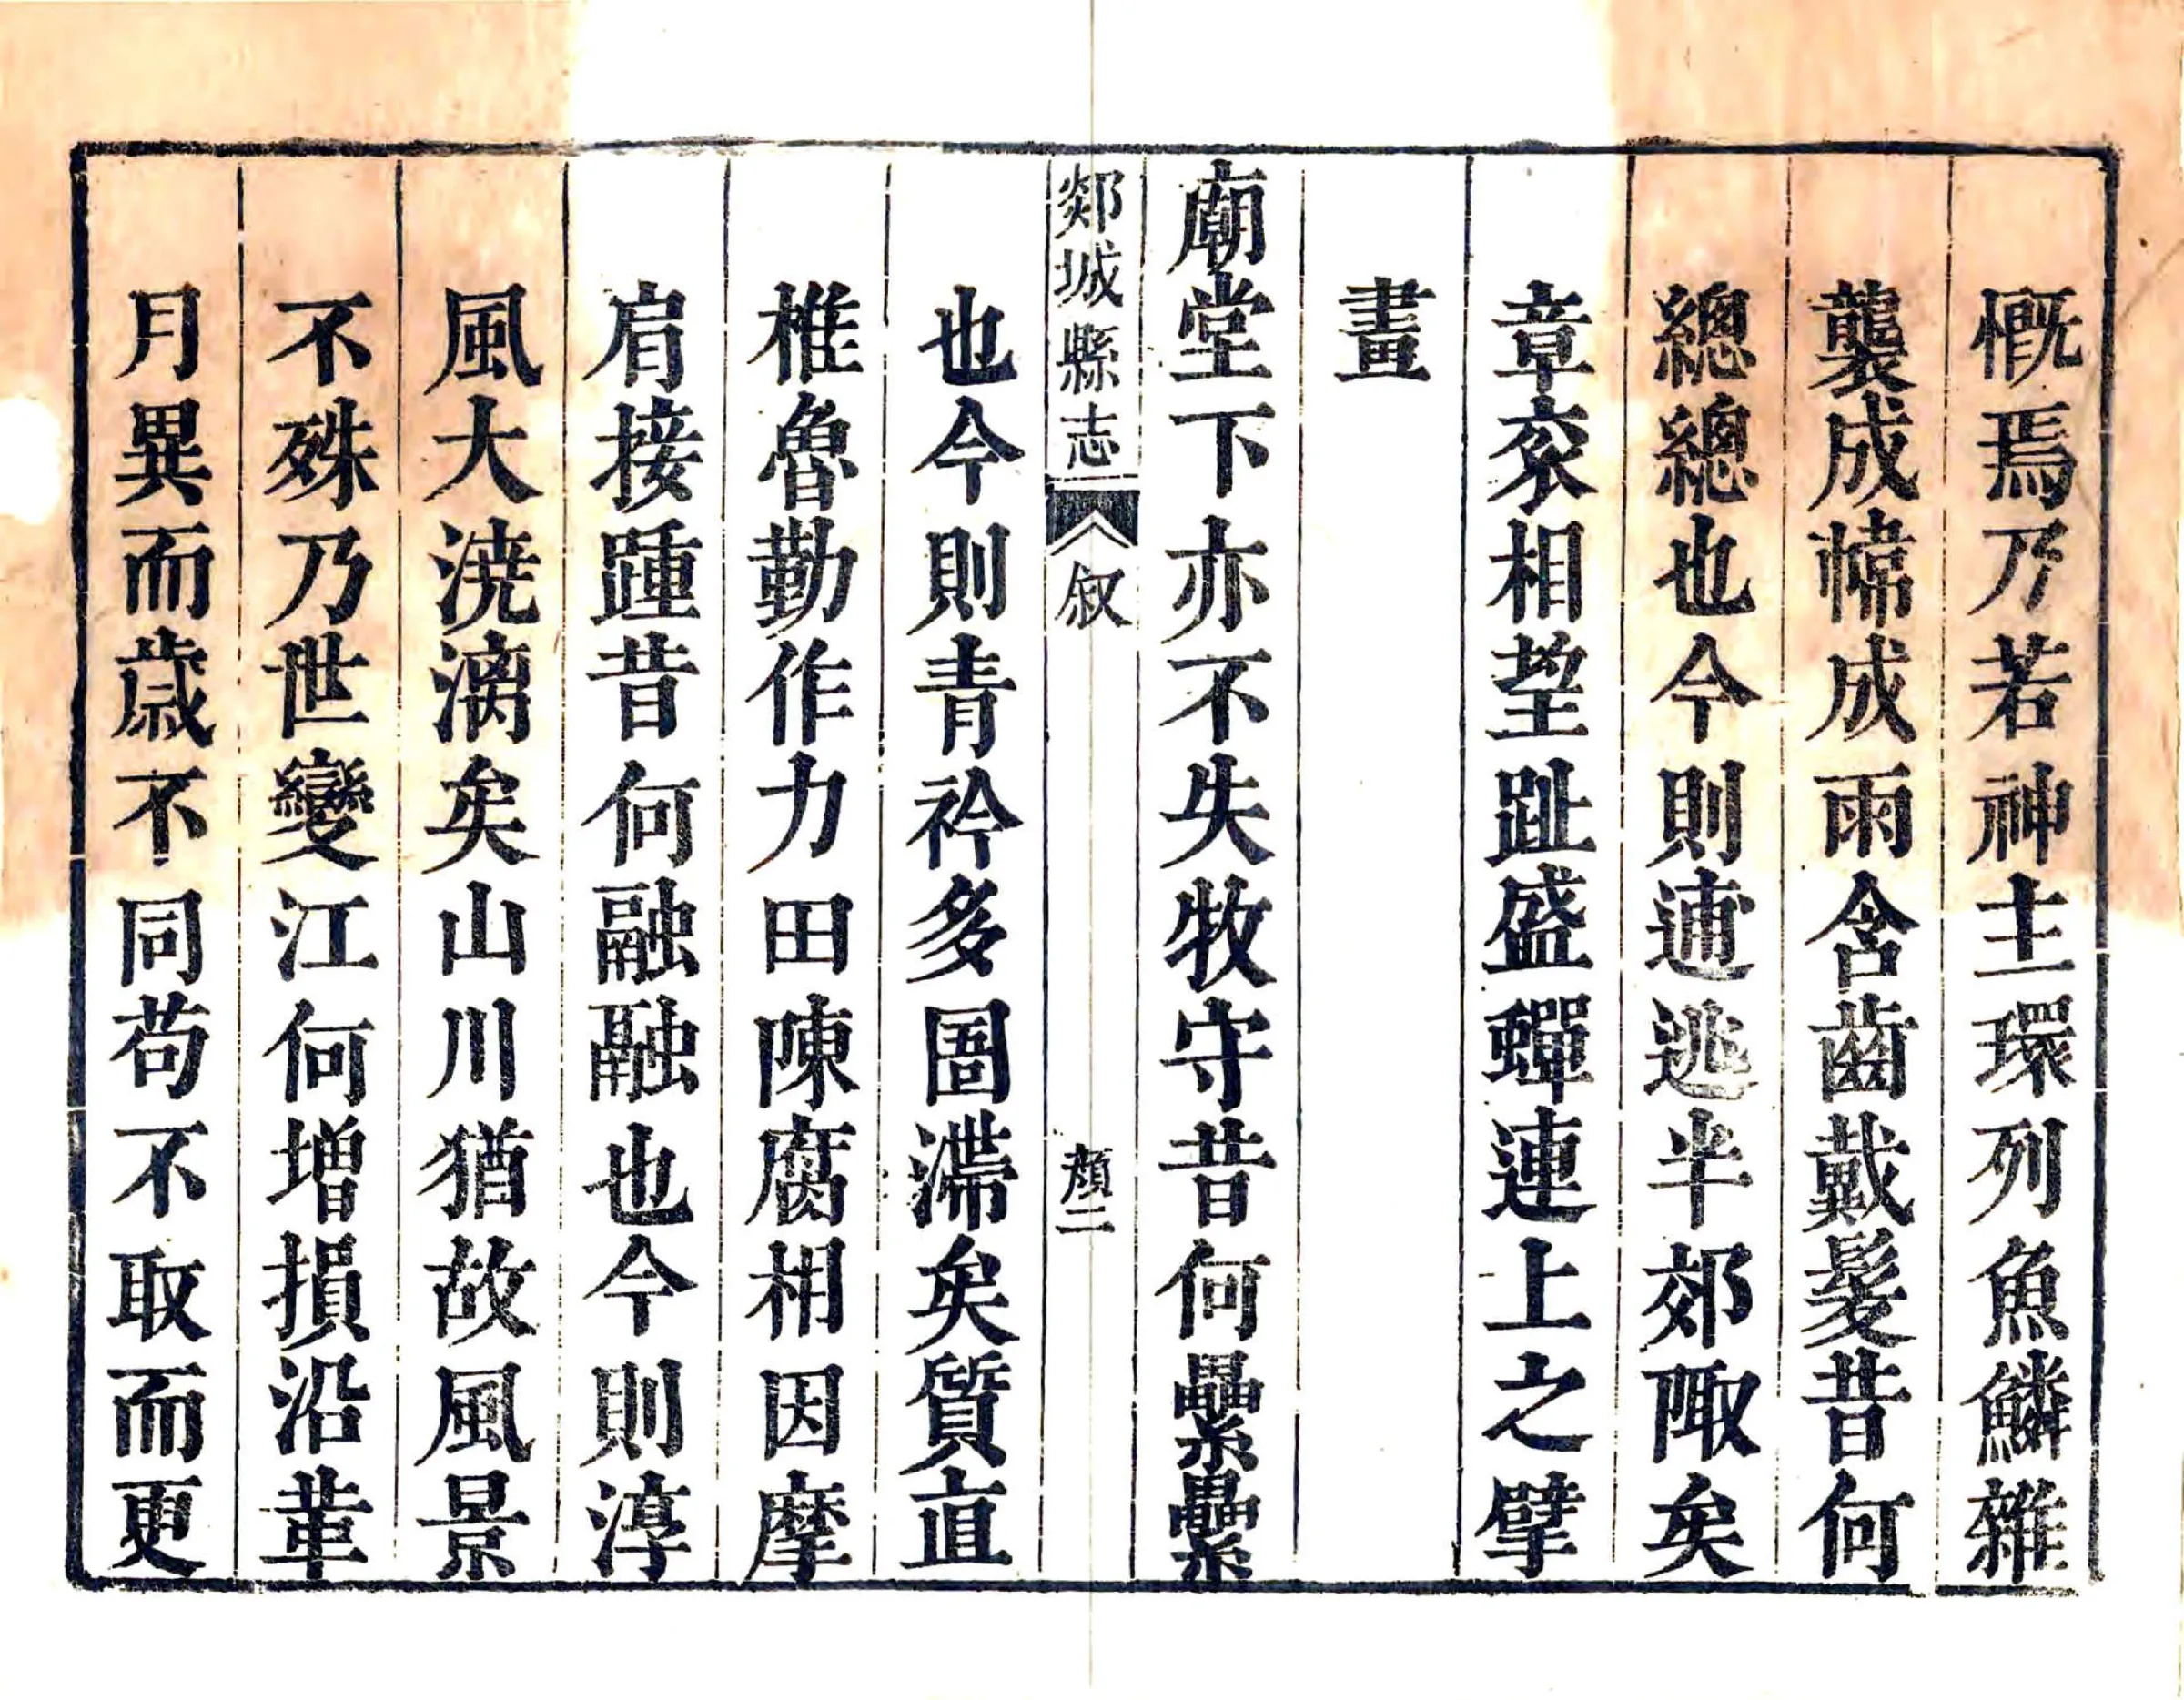 慨焉乃若神主環列魚鱗雜
襲成幃成雨含齒戴髮昔何
總總也今則逋逃半郊陬矣
章衮相望趾盛蟬連上之擘
畫
廟堂下亦不失牧守昔何纍纍
郯城縣志 叙 顏二
也今則青衿多圄滯矣質直
椎魯勤作力田陳腐相因摩
肩接踵昔何融融也今則淳
風大澆漓矣山川猶故風景
不殊乃世變江何增損沿革
月異而歲不同苟不取而更